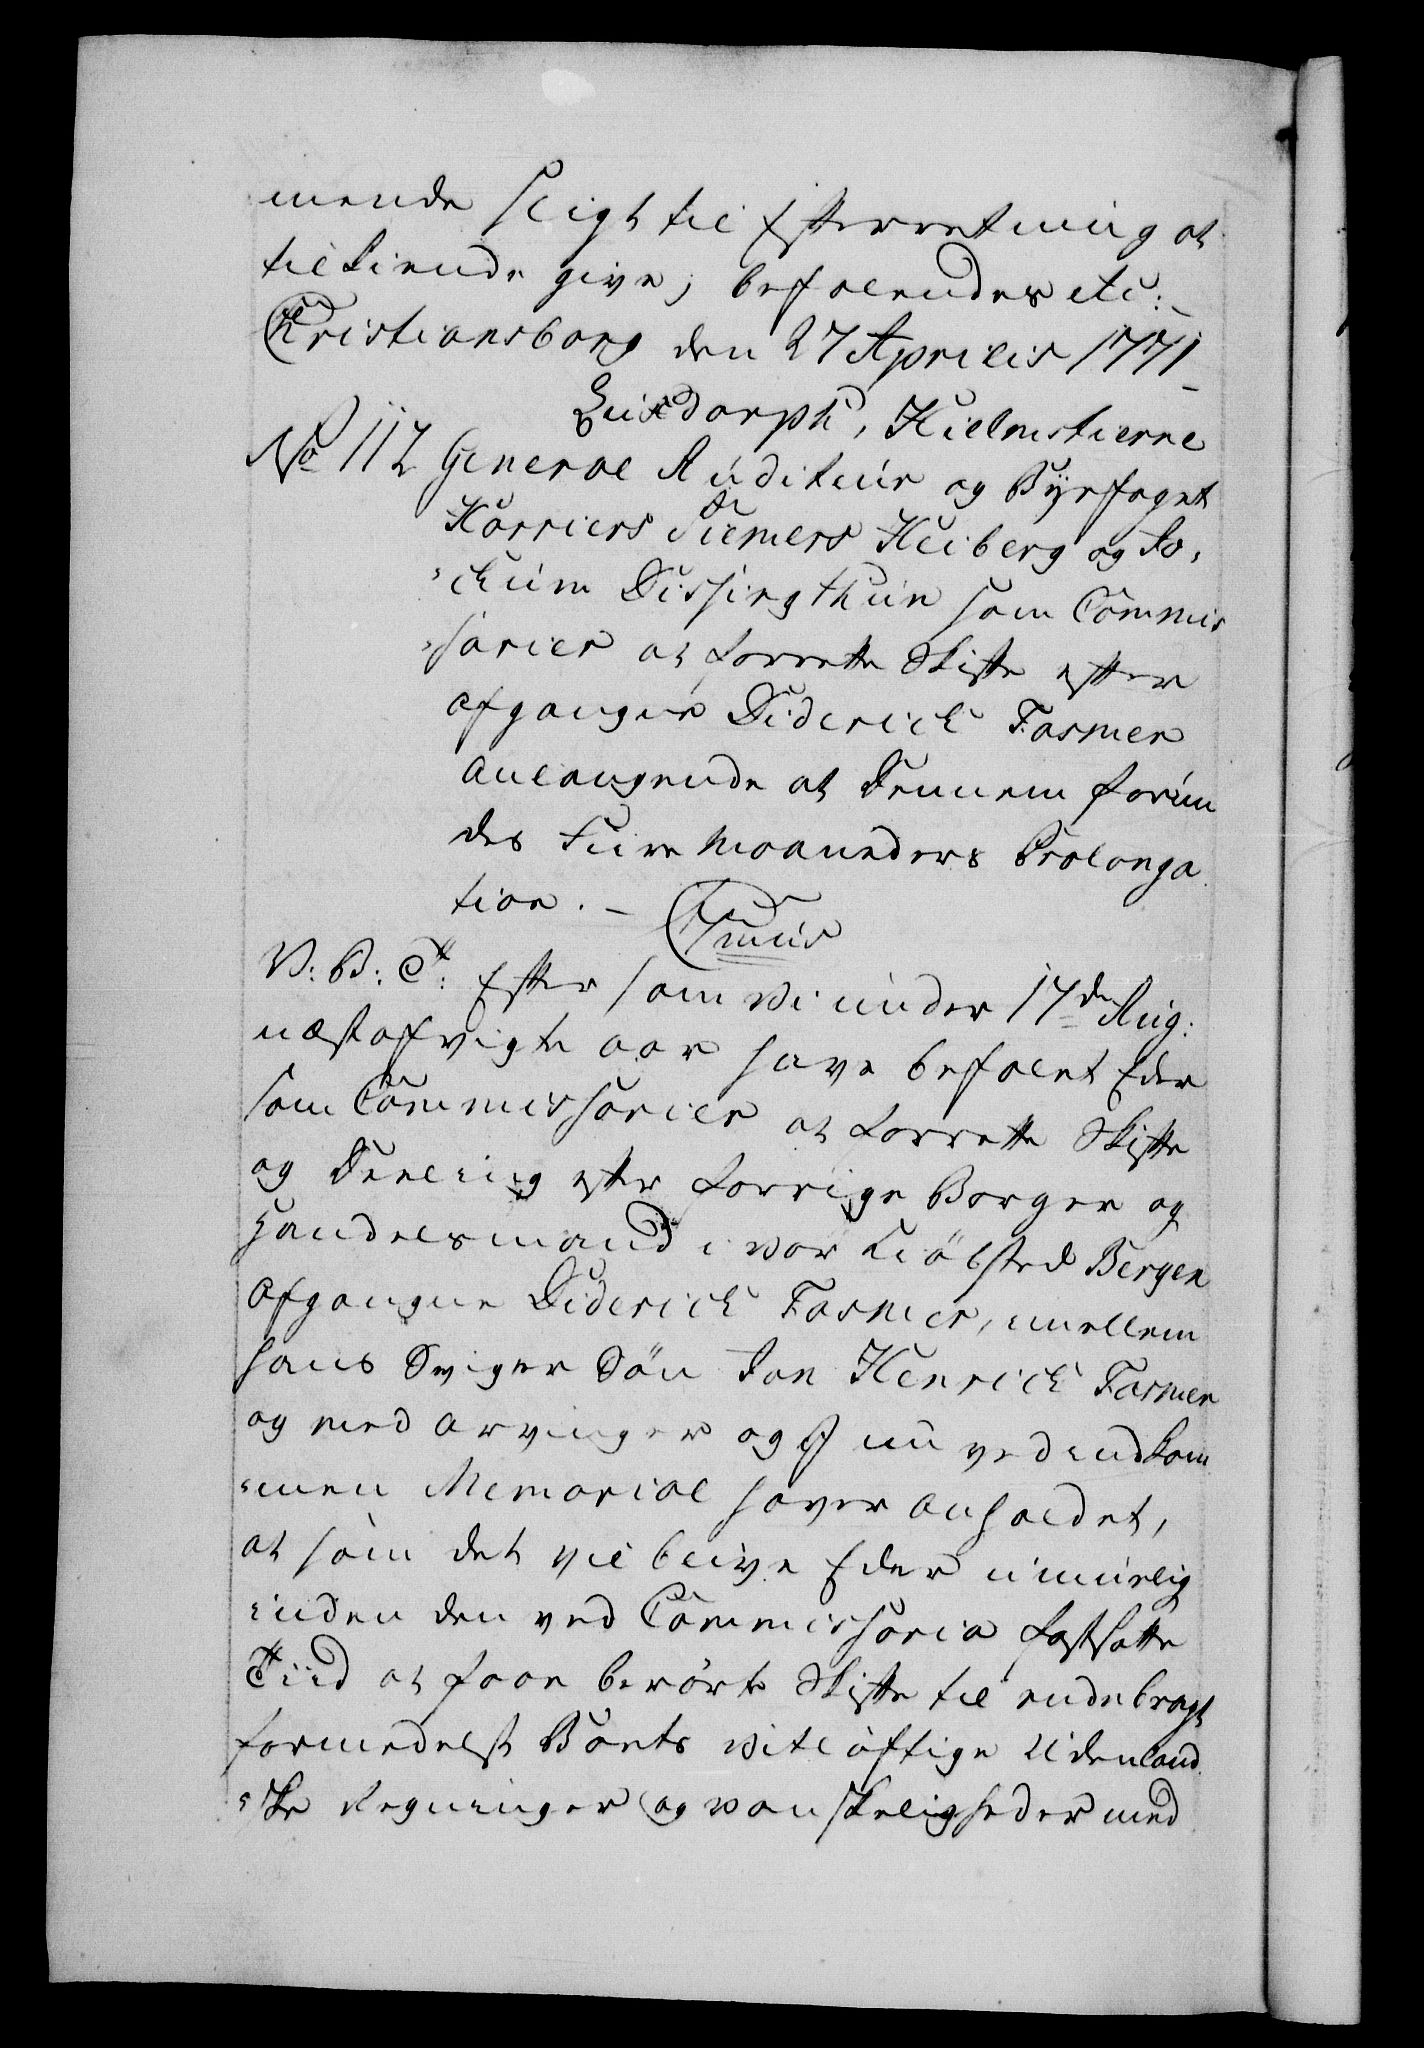 mende sligt til Efterretning at
tilkiende give; befalendes etc:
Christiansborg den 27 Aprilis 1771
Luxdorph, Hielmstierne
No 112 General Auditeur og Byefoget
Harriers Siemers Heiberg og Jo¬
¬chum Dissingthun som Commis
¬sarier at forrette Skifte efter
afgangne Diderich Fasmer
anlangende at Dennem forun
des Fiire Maaneders Prolonga
tion. –
V: B: T: Efter som vi under 17de Aug:
næstafvigte aar have befalet Eder
som Commissarier at forrette Skifte
og Deeling efter forrige Borger og
Handelsmand i vor Kiöbsted Bergen
afgangne Diderich Fasmer, imellem
hans Sviger Sön Jan Henrich Fasmer
og med arvinger og I nu ved indkom
¬men Memorial haver anholdet,
at som det vil blive Eder umuelig
inden den ved Commissoria fastsatte
Tiid at faae berörte Skifte til endebragt
formedelst Boets vitlöftige Udenland
¬ske Regninger og vanskeligheder med